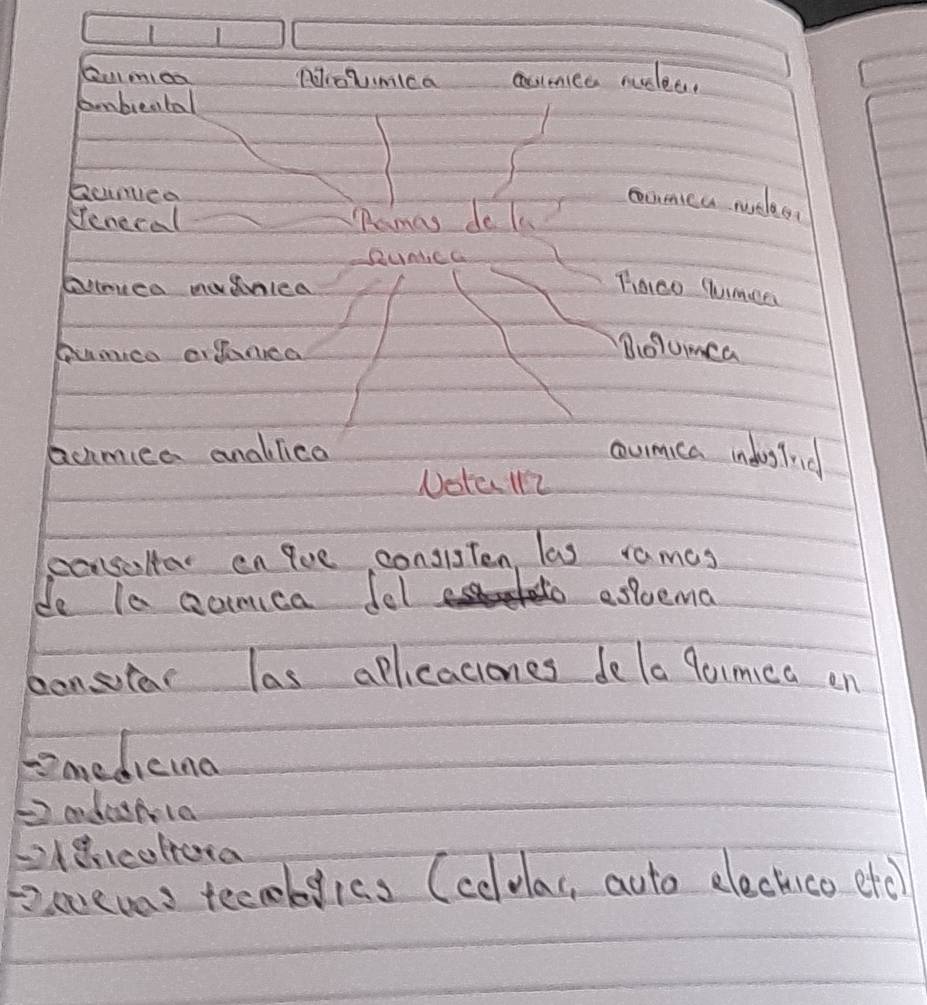 Quimica Petroquimica Quimica nuclear
ambiental
Quimica Quimica nuclear
General Ramas de la
Quimica
Quimica inorganica Fisico quimica
Quimica organica Bioquimica
Quimica analitica Quimica industrial
Nota 112
consultar en que consisten las ramas
de la Quimica del esquema
consultar las aplicaciones de la quimica en
→ medicina
→ industria
→ Agricultura
→ nuevas tecnologias (celular, auto electrico etc)